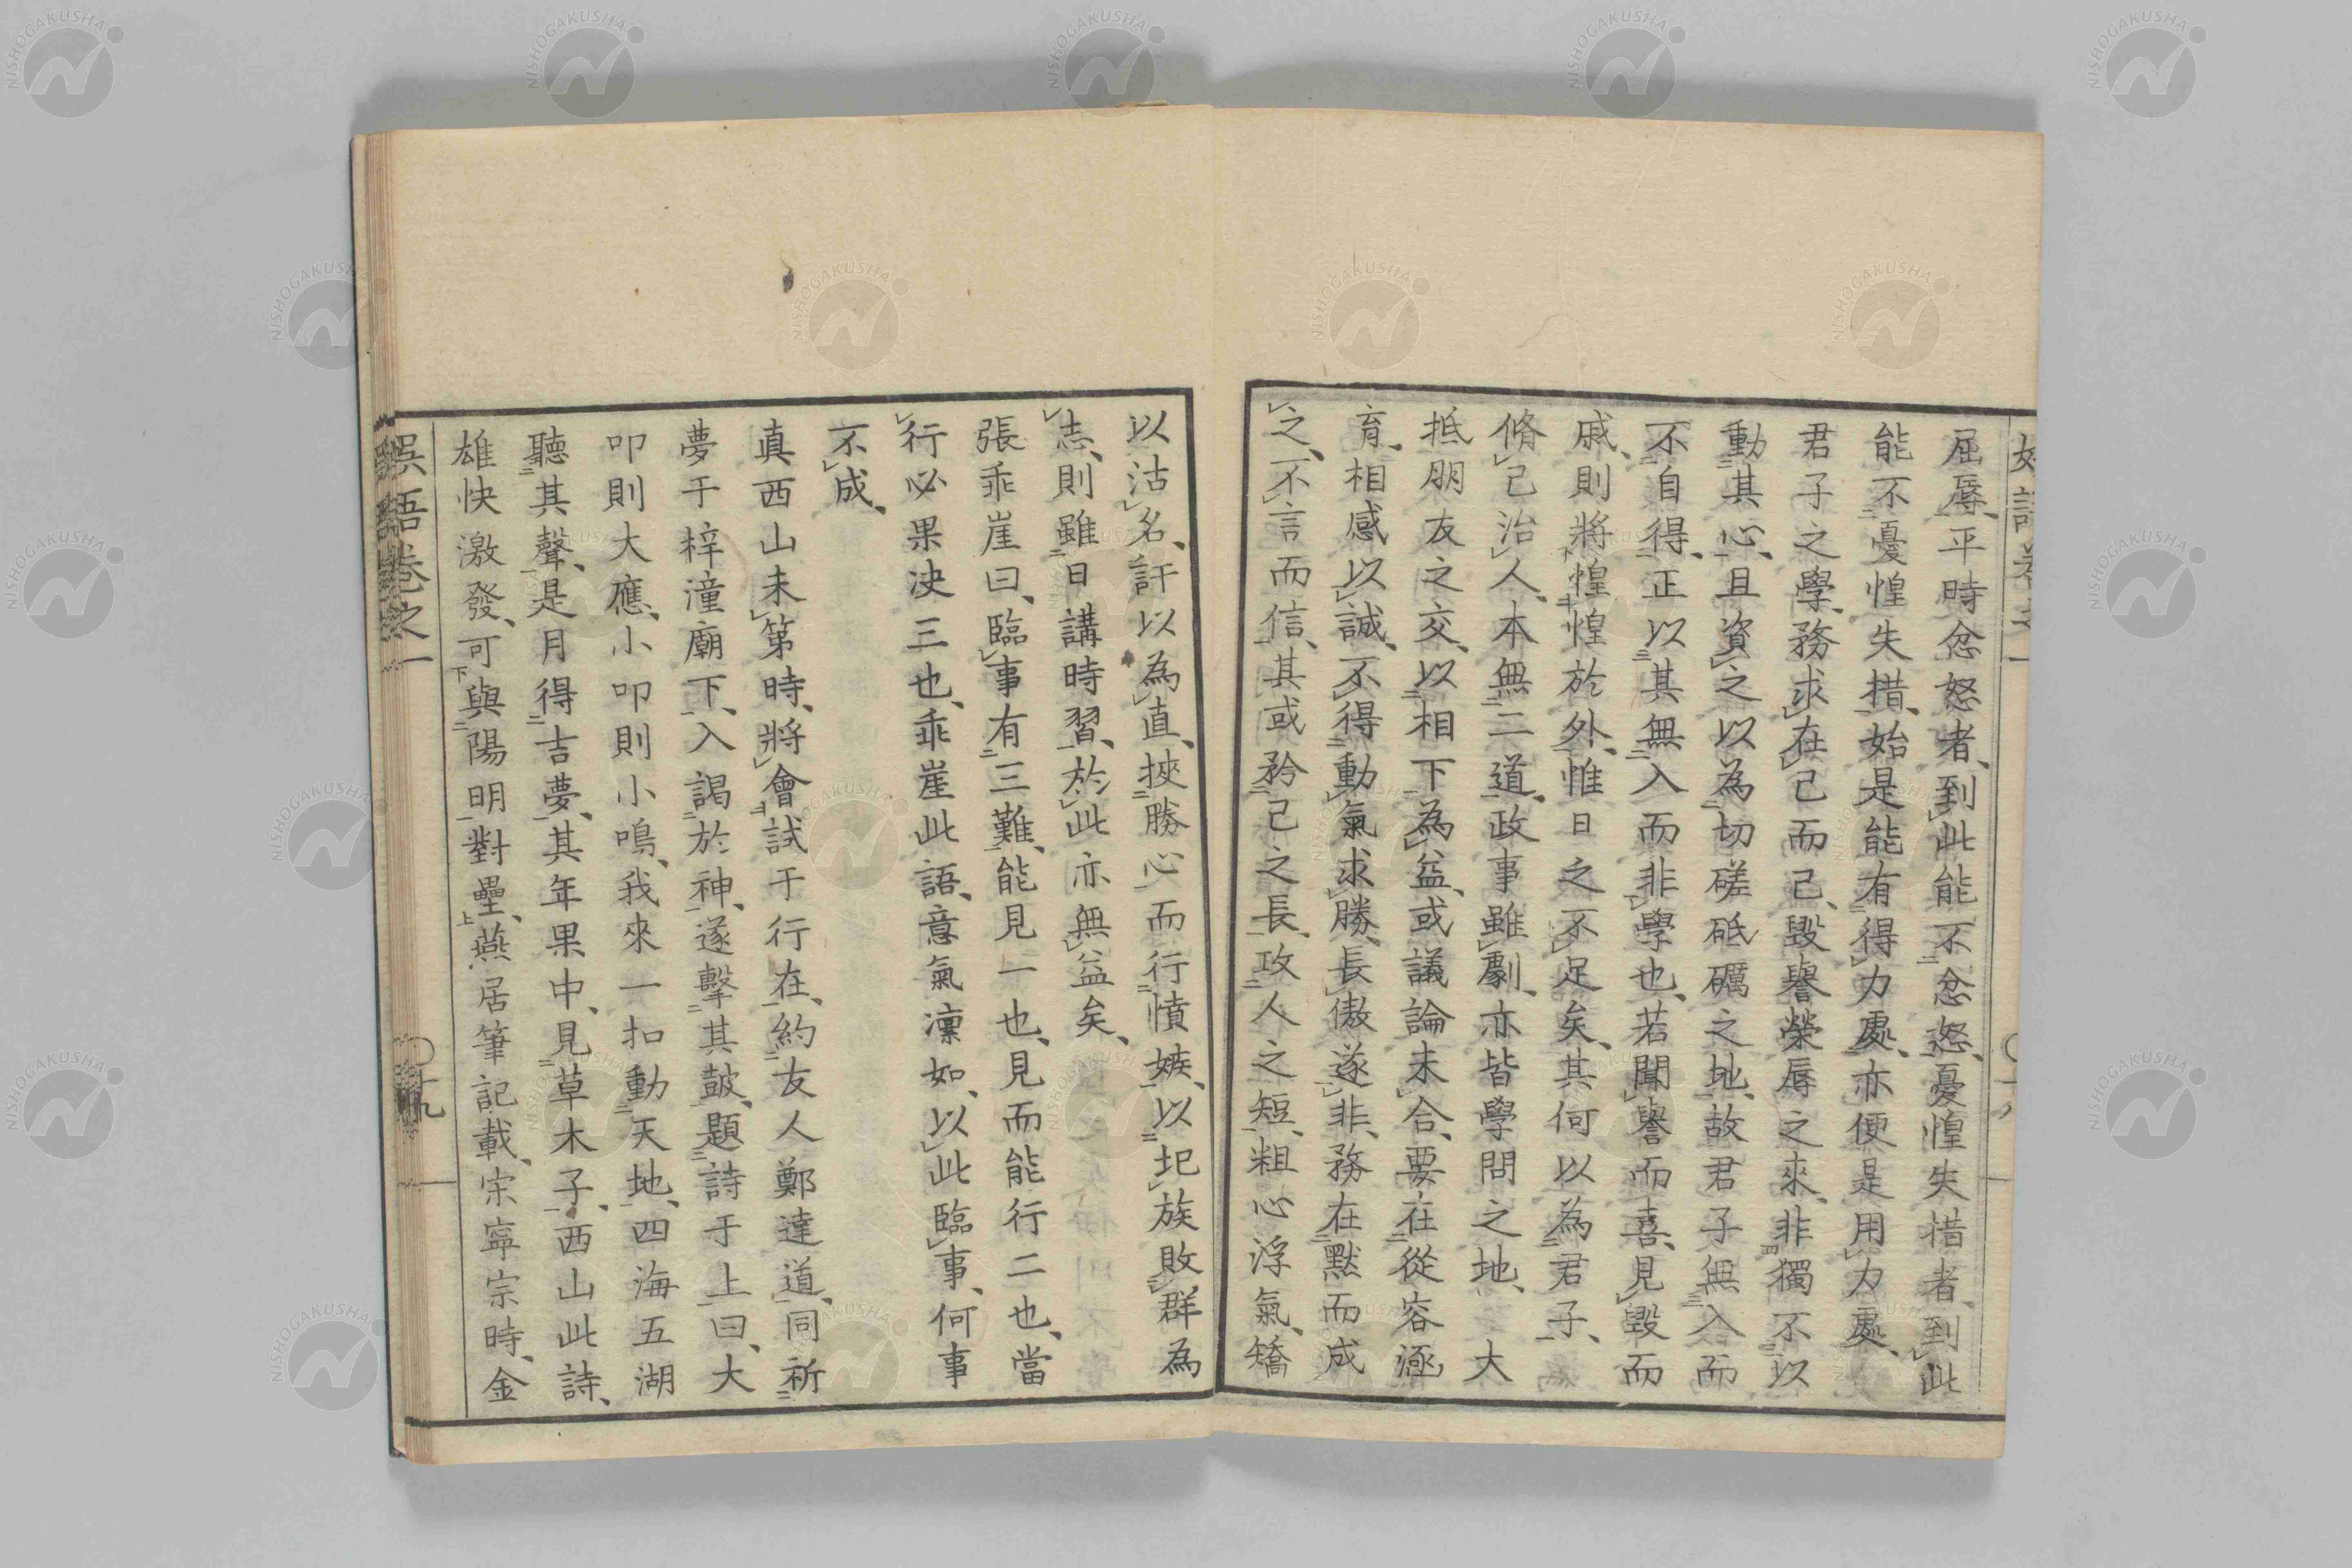 屈辱、平時忿怒者、到此能不忿怒、憂惶失措者、到此
能不憂惶失措、始是能有得力處、亦便是用力處、
君子之學、務求在己而已、毀譽榮辱之來、非獨不以
動其心、且資之以為切磋砥礪之地、故君子無入而
不自得、正以其無入而非學也、若聞譽而喜、見毀而
戚、則將惶惶於外、惟日之不足矣、其何以為君子、
脩己治人、本無二道、政事雖劇、亦皆學問之地、大
抵朋友之交、以相下為益、或議論未合、要在從容涵
育、相感以誠、不得動氣求勝、長傲遂非、務在默而成
之、不言而信、其或矜己之長、攻人之短、粗心浮氣、矯
以沽名、訐以為直、挾勝心而行憤嫉、以圮族敗群為
志、則雖日講時習、於此亦無益矣、
張乖崖曰、臨事有三難、能見一也、見而能行二也、當
行必果決三也、乖崖此語、意氣凜如、以此臨事、何事
不成、
真西山未第時、將會試于行在、約友人鄭達道、同祈
夢于梓潼廟下、入謁於神、遂擊其鼓、題詩于上曰、大
叩則大應、小叩則小鳴、我來一扣動天地、四海五湖
聽其聲、是月得吉夢、其年果中、見草木子、西山此詩、
雄快激發、可與陽明對壘、燕居筆記載、宗寧宗時、金
娛語卷之一
〇十九